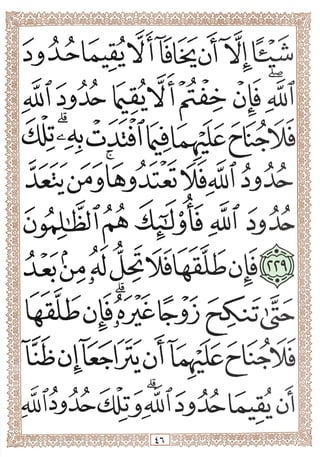 شَيْـًٔا إِلَّآ أَن يَخَافَآ أَلَّا يُقِيمَا حُدُودَ
ٱللَّهِۖ فَإِنْ خِفْتُمْ أَلَّا يُقِيمَا حُدُودَ ٱللَّهِ
فَلَا جُنَاحَ عَلَيْهِمَا فِيمَا ٱفْتَدَتْ بِهِۦۗ تِلْكَ
حُدُودُ ٱللَّهِ فَلَا تَعْتَدُوهَاۚ وَمَن يَتَعَدَّ
حُدُودَ ٱللَّهِ فَأُو۟لَـٰٓئِكَ هُمُ ٱلظَّـٰلِمُونَ
٢٢٩ فَإِن طَلَّقَهَا فَلَا تَحِلُّ لَهُۥ مِنۢ بَعْدُ
حَتَّىٰ تَنكِحَ زَوْجًا غَيْرَهُۥۗ فَإِن طَلَّقَهَا
فَلَا جُنَاحَ عَلَيْهِمَآ أَن يَتَرَاجَعَآ إِن ظَنَّآ
أَن يُقِيمَا حُدُودَ ٱللَّهِۗ وَتِلْكَ حُدُودُ ٱللَّهِ
٤٦